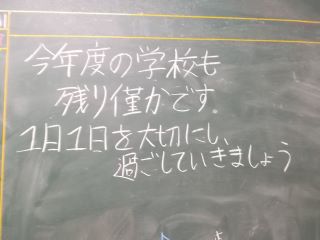 今年度の学校も
残り僅かです.
1日1日を大切にし、
過ごしていきましょう